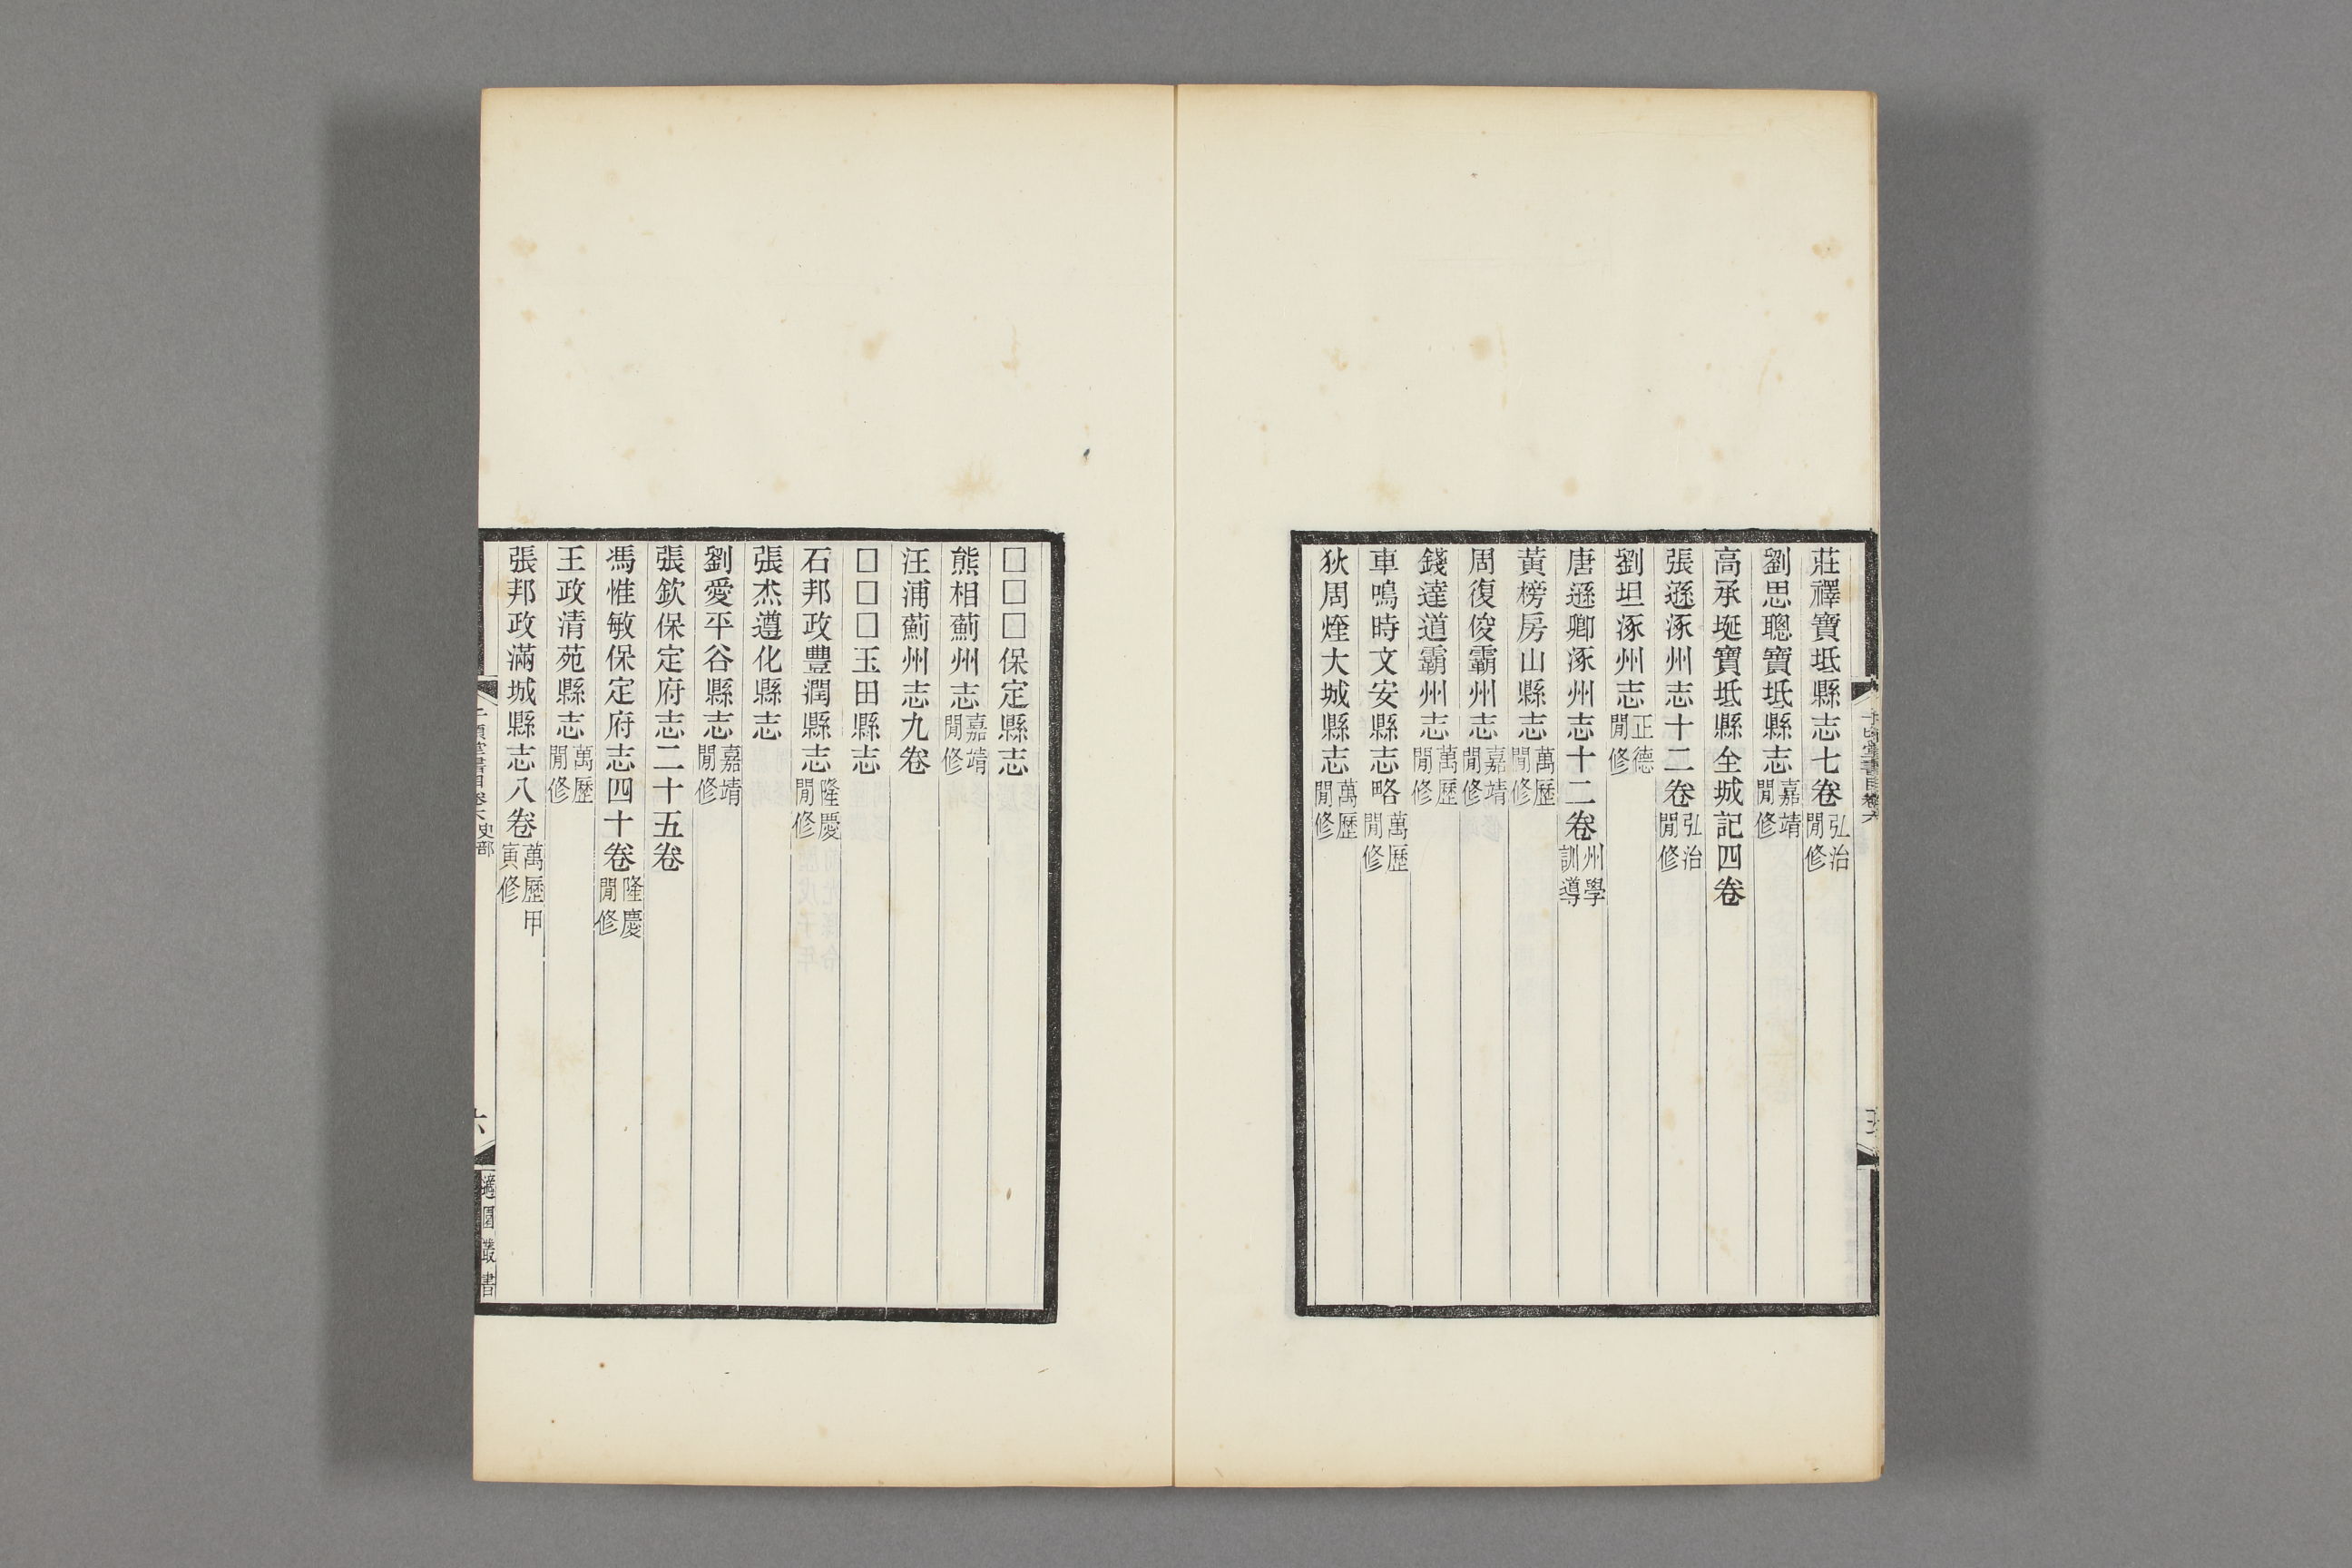 莊禪寶坻縣志七卷弘治閒修
劉思聰寶坻縣志嘉靖閒修
高承埏寶坻縣全城記四卷
張遜涿州志十二卷弘治閒修
劉坦涿州志正德閒修
唐遜卿涿州志十二卷州學訓導
黃榜房山縣志萬歷閒修
周復俊霸州志嘉靖閒修
錢達道霸州志萬歷閒修
車鳴時文安縣志略萬歷閒修
狄周煃大城縣志萬歷閒修
□□□保定縣志
熊相薊州志嘉靖閒修
汪浦薊州志九卷
□□□玉田縣志
石邦政豐潤縣志隆慶閒修
張杰遵化縣志
劉愛平谷縣志嘉靖閒修
張欽保定府志二十五卷
馮惟敏保定府志四十卷隆慶閒修
王政清苑縣志萬歷閒修
張邦政滿城縣志八卷萬歷甲寅修
千頃堂書目卷六史部
六
適園叢書